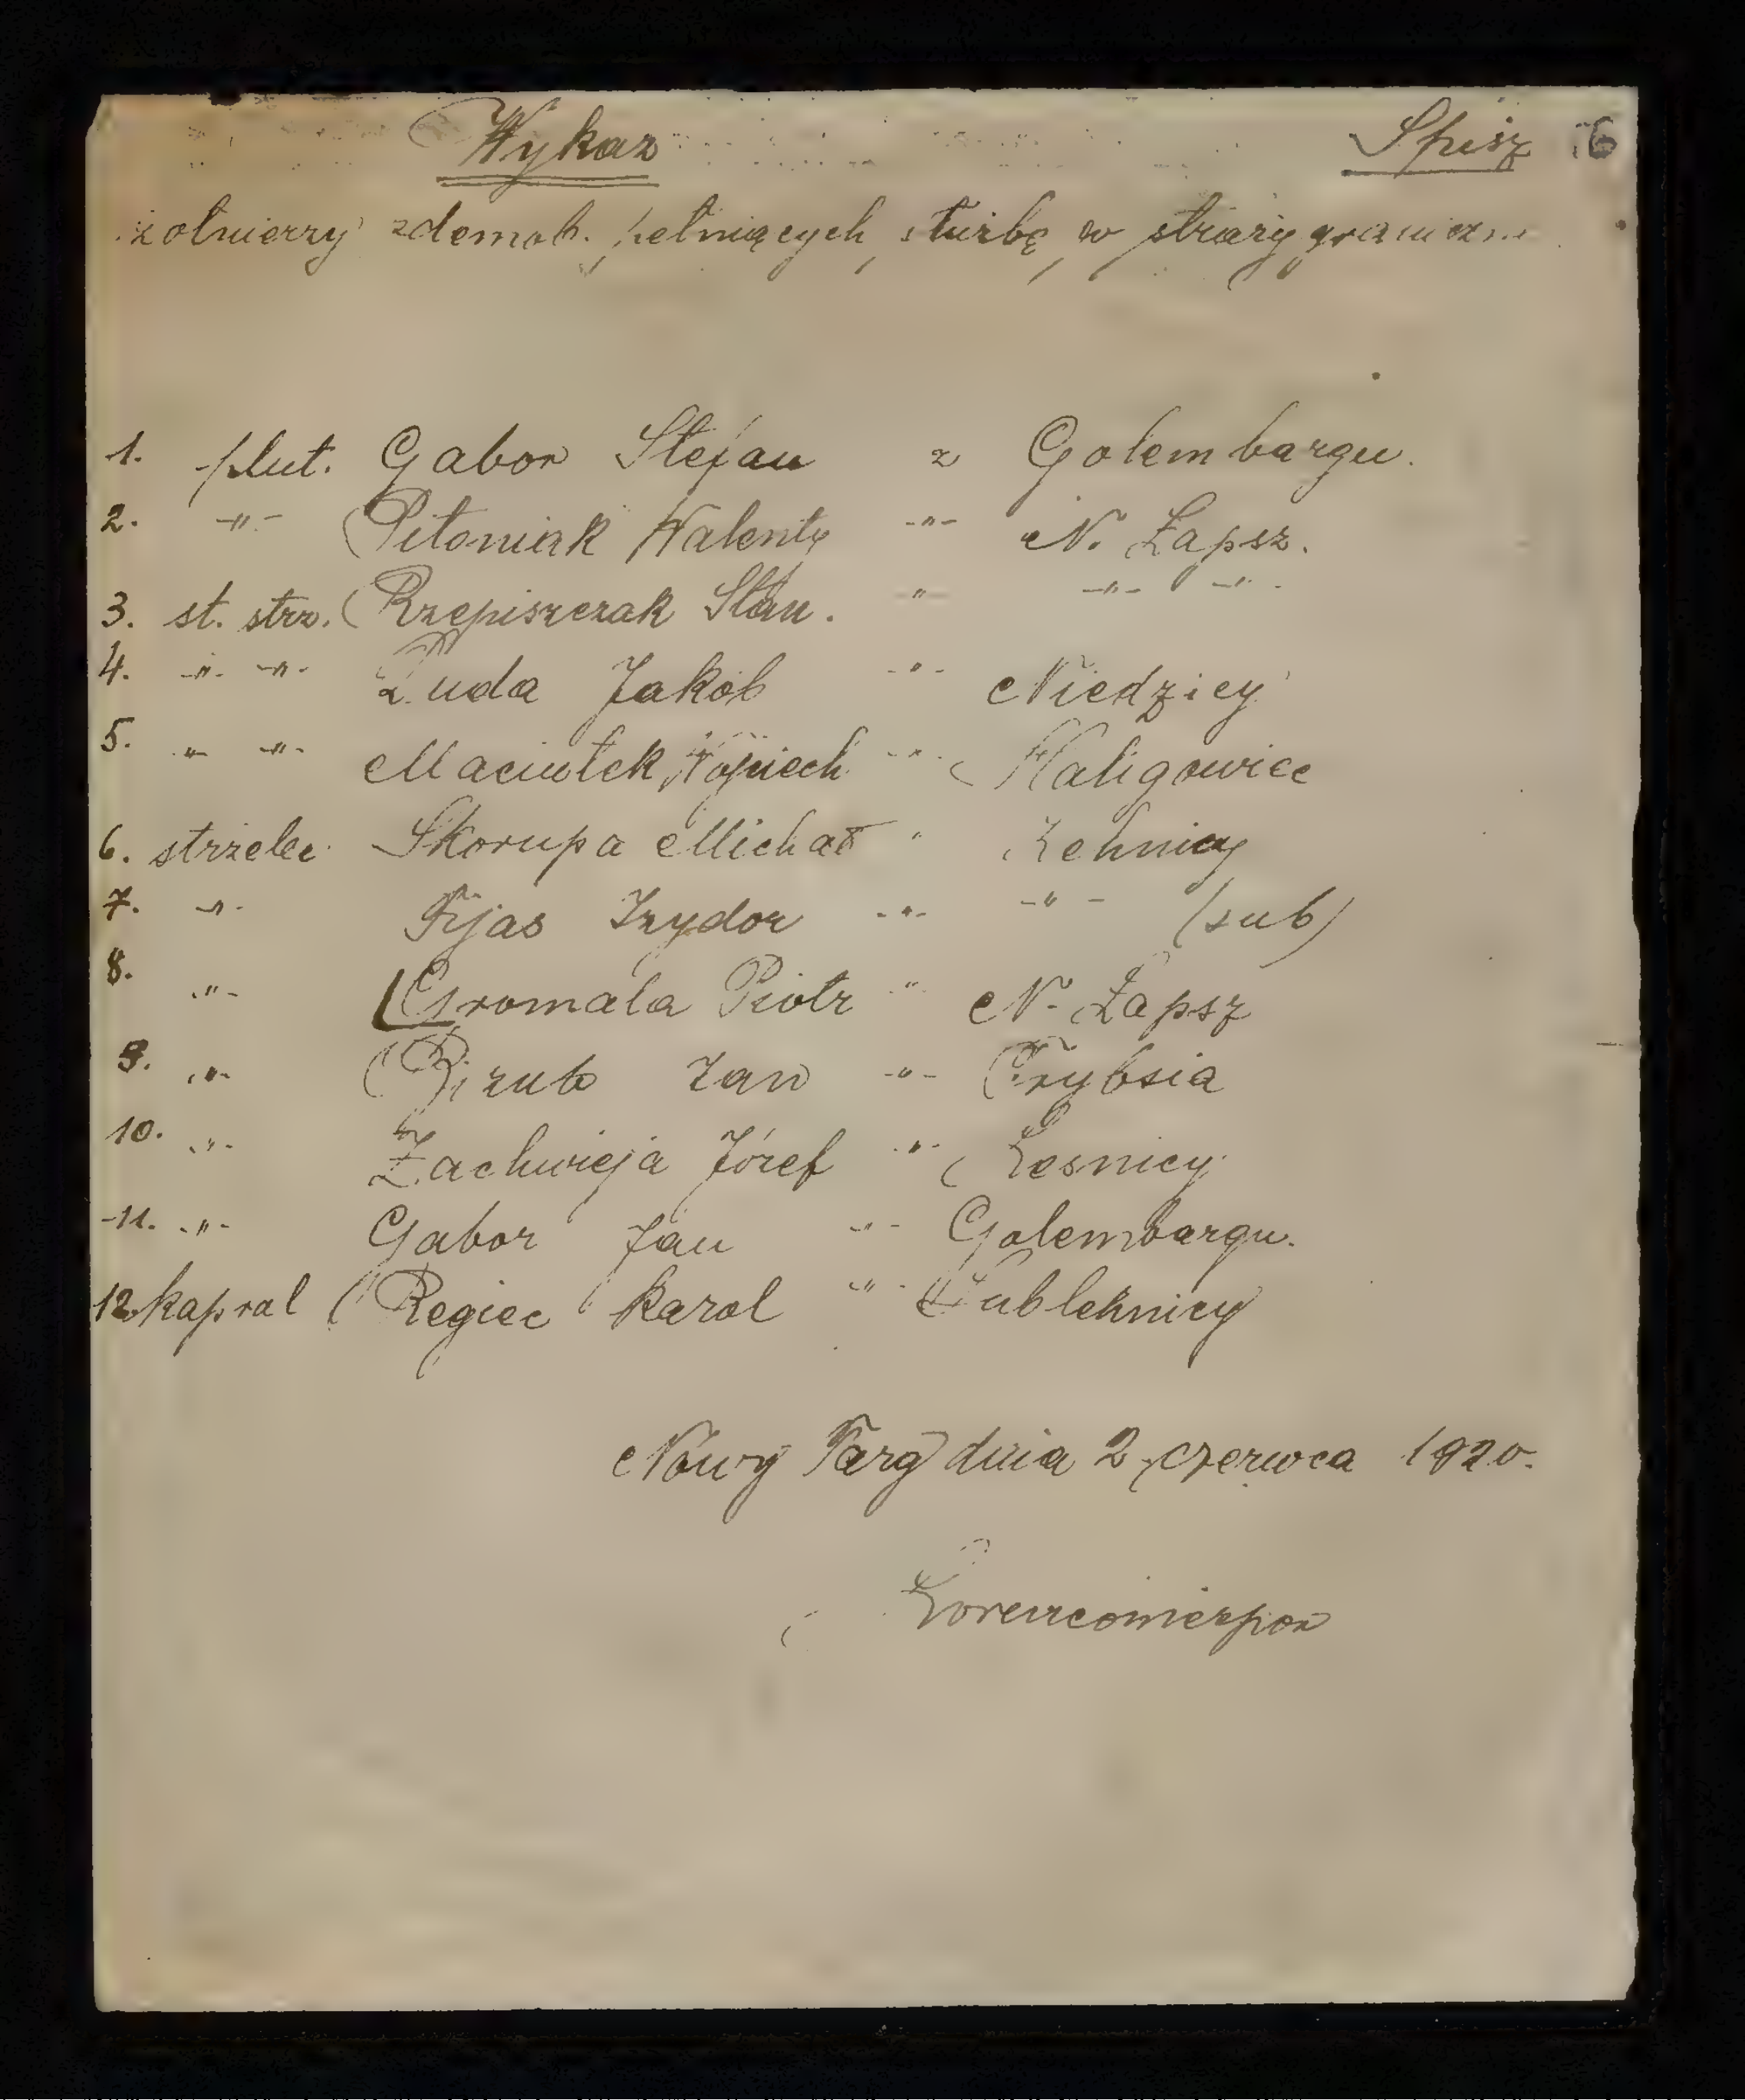 Wykaz Spisz 6
żołnierzy zdemob. pełniących służbę w straży graniczn
1. plut. Gabor Stefan z Golembargu.
2. -"- Pitoniak Walenty -"- N. Łapsz.
3. st. strz. Rzepiszczak Stan. " -"- -"-
4. -"- -"- Duda Jakób -"- Niedzicy
5. -"- -"- Maciołek Wojciech -"- Haligowiec
6. strzelec Skorupa Michał " Lehnicy
7. -"- Fijas Izydor -"- -"- (sub)
8. -"- Gromala Piotr " N. Łapsz
9. -"- Bizub Jan -"- Trybsia
10. -"- Zachwieja Józef -"- Lesnicy
11. -"- Gabor Jan -"- Golembargu.
12. kapral Regiec Karol -"- Sublehnicy
Nowy Targ dnia 2 czerwca 1920.